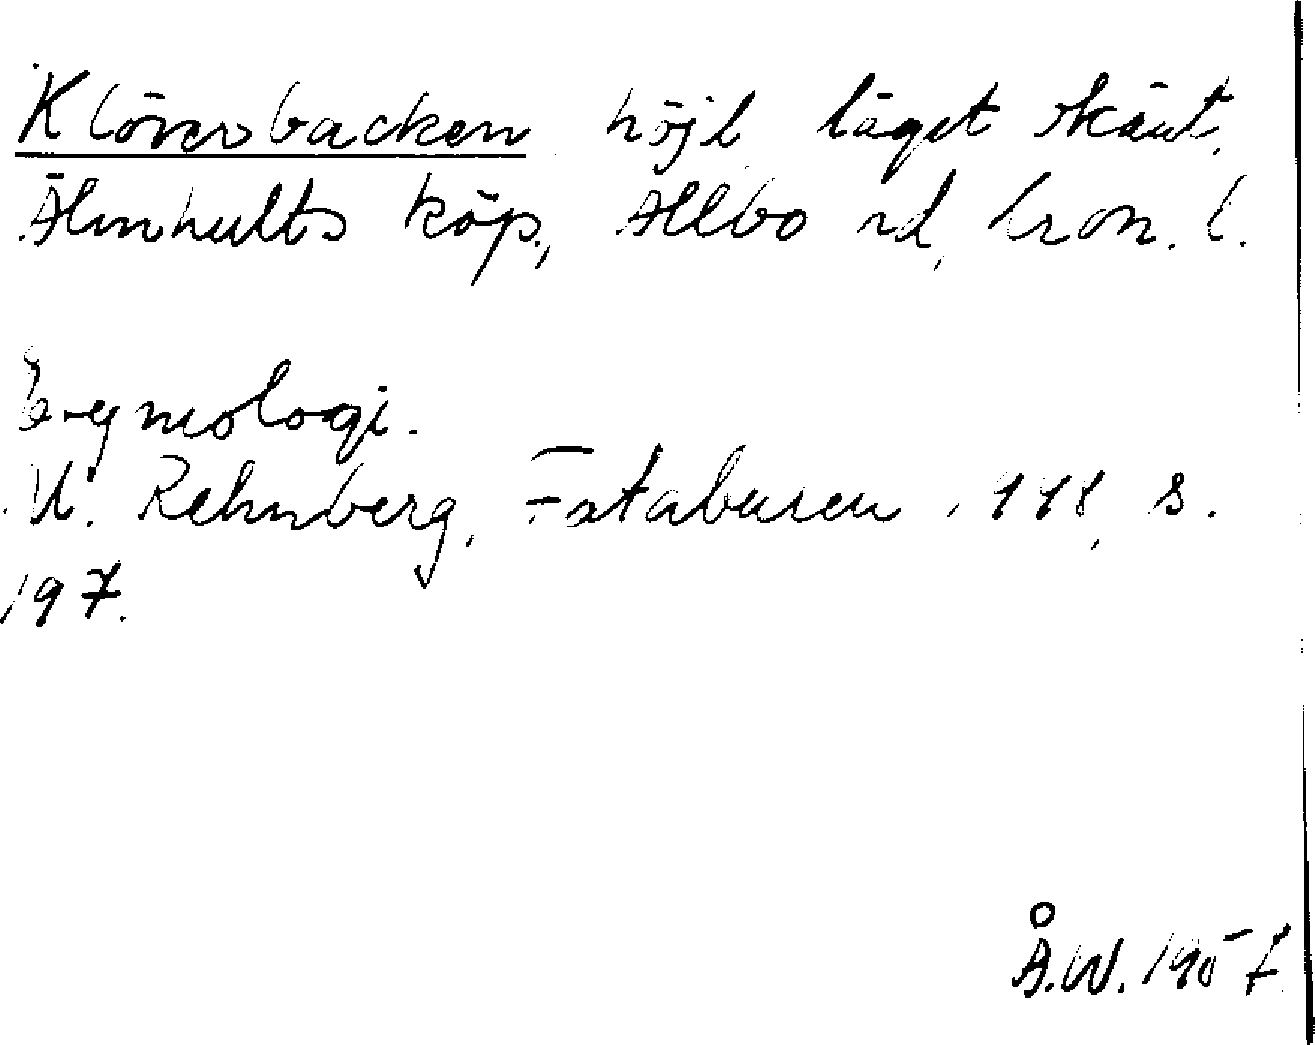 Klöverbacken höjl läget skämt,
Älmhults köp., Allbo hd, Kron. l.
Etymologi.
M. Rehnberg, Fataburen, 1948, s.
197.
Å.W. 1957